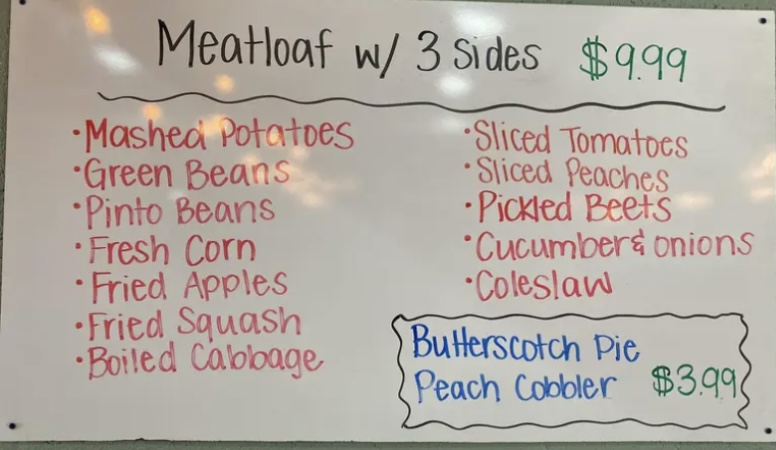 Meatloaf w/ 3 Sides $9.99
·Mashed Potatoes
·Green Beans
·Pinto Beans
·Fresh Corn
·Fried Apples
·Fried Squash
·Boiled Cabbage
·Sliced Tomatoes
·Sliced Peaches
·Pickled Beets
·Cucumber & onions
·Coleslaw
Butterscotch Pie
Peach Cobbler $3.99